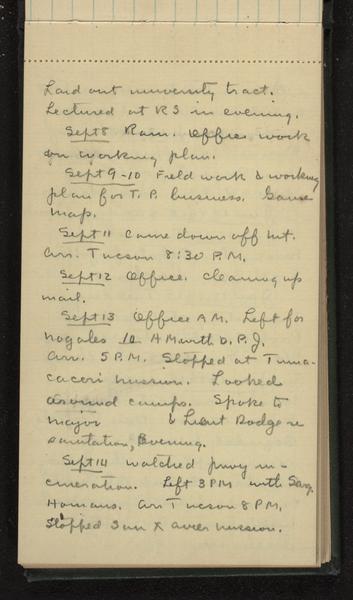 Laid out university tract.
Lectured at RS in evening.
Sept 8 Rain. Office work
on working plan.
Sept 9-10 Field work & working
plan for T.P. business. Game
map.
Sept 11 Came down off mt.
Arr. Tucson 8:30 P.M.
Sept 12 Office. Cleaning up
mail.
Sept 13 Office A.M. Left for
Nogales 10 AM with D.P.J.
Arr. 5 P.M. Stopped at Tuma-
cacori mission. Looked
around camps. Spoke to
Major & Lieut Dodge re
sanitation, Evening.
Sept 14 Watched privy in-
cineration. Left 3 PM with Sarg.
Homans. Arr Tucson 8 PM.
Stopped San Xavier mission.